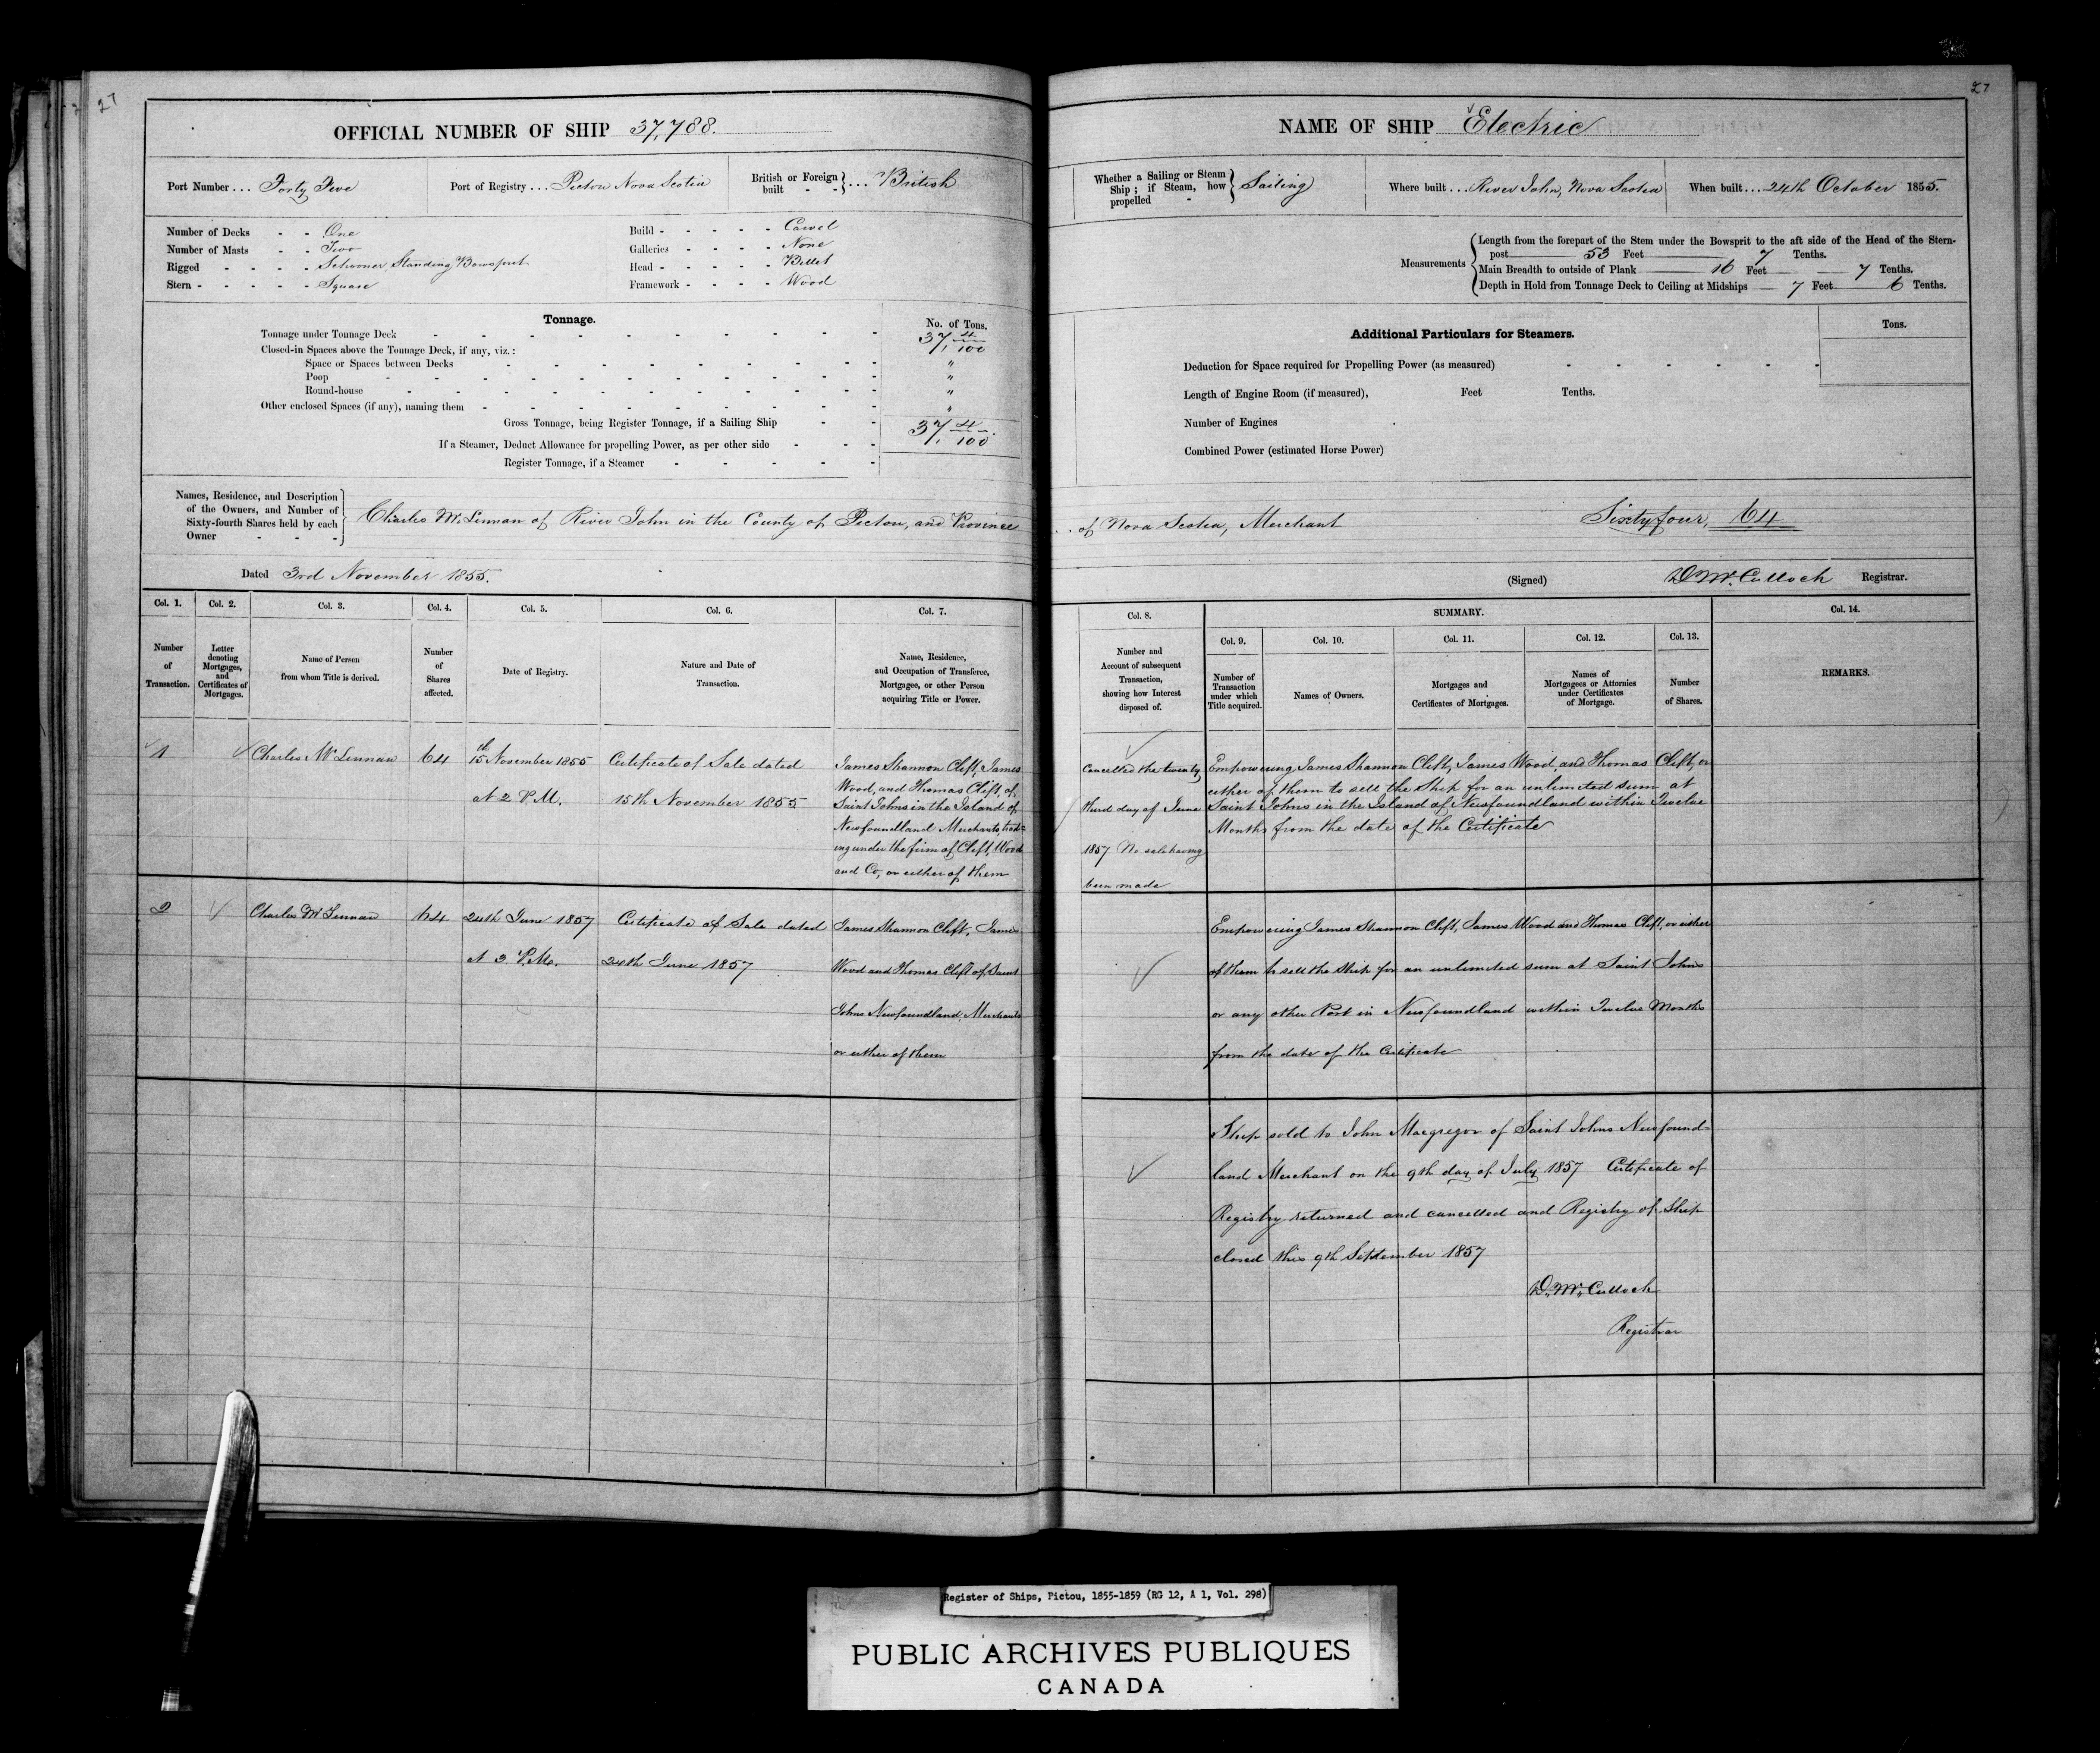 27
27
OFFICIAL NUMBER OF SHIP 37,788.
Port Number ... Forty Five
Port of Registry ... Pictou Nova Scotia
British or Foreign built - - } ... British
Number of Decks - - One
Number of Masts - - Two
Rigged - - - - Schooner, Standing Bowsprit
Stern - - - - - Square
Build - - - - - Carvel
Galleries - - - - None
Head - - - - - Billet
Framework - - - - Wood
Tonnage.
No. of Tons.
Tonnage under Tonnage Deck 37, 4/100
Closed-in Spaces above the Tonnage Deck, if any, viz.:
Space or Spaces between Decks "
Poop "
Round-house "
Other enclosed Spaces (if any), naming them "
Gross Tonnage, being Register Tonnage, if a Sailing Ship 37, 4/100.
If a Steamer, Deduct Allowance for propelling Power, as per other side
Register Tonnage, if a Steamer
Names, Residence, and Description
of the Owners, and Number of
Sixty-fourth Shares held by each
Owner - - -
Charles McLennan of River John in the County of Pictou, and Province
Dated 3rd November 1855.
Col. 1. Col. 2. Col. 3. Col. 4. Col. 5. Col. 6. Col. 7.
Number of Transaction.
Letter denoting Mortgages, and Certificates of Mortgages.
Name of Person from whom Title is derived.
Number of Shares affected.
Date of Registry.
Nature and Date of Transaction.
Name, Residence, and Occupation of Transferee, Mortgagee, or other Person acquiring Title or Power.
1
Charles McLennan
64
15th November 1855
At 2 P.M.
Certificate of Sale dated
15th November 1855
James Shannon Clift, James
Wood, and Thomas Clift, of
Saint Johns in the Island of
Newfoundland Merchants, trad-
ing under the firm of Clift, Wood
and Co, or either of them
2
Charles McLennan
64
24th June 1857
At 2 P.M.
Certificate of Sale dated
24th June 1857
James Shannon Clift, James
Wood and Thomas Clift of Saint
Johns Newfoundland, Merchants
or either of them
NAME OF SHIP Electric
Whether a Sailing or Steam Ship; if Steam, how propelled - } Sailing
Where built ... River John, Nova Scotia
When built ... 24th October 1855.
Measurements
Length from the forepart of the Stem under the Bowsprit to the aft side of the Head of the Stern-
post 53 Feet 7 Tenths.
Main Breadth to outside of Plank 16 Feet 7 Tenths.
Depth in Hold from Tonnage Deck to Ceiling at Midships 7 Feet 6 Tenths.
Additional Particulars for Steamers.
Tons.
Deduction for Space required for Propelling Power (as measured)
Length of Engine Room (if measured), Feet Tenths.
Number of Engines
Combined Power (estimated Horse Power)
of Nova Scotia, Merchant Sixty four, 64
(Signed) D McCulloch Registrar.
Col. 8.
SUMMARY.
Col. 14.
Col. 9. Col. 10. Col. 11. Col. 12. Col. 13.
Number and Account of subsequent Transaction, showing how Interest disposed of.
Number of Transaction under which Title acquired.
Names of Owners.
Mortgages and Certificates of Mortgages.
Names of Mortgagees or Attornies under Certificates of Mortgage.
Number of Shares.
REMARKS.
Cancelled the twenty
third day of June
1857 No sale having
been made
Empowering James Shannon Clift, James Wood, and Thomas Clift, or
either of them to sell the Ship for an unlimited sum at
Saint Johns in the Island of Newfoundland within Twelve
Months from the date of the Certificate
Empowering James Shannon Clift, James Wood and Thomas Clift, or either
of them to sell the Ship for an unlimited sum at Saint Johns
or any other Port in Newfoundland within Twelve Months
from the date of the Certificate
Ship sold to John Macgregor of Saint Johns Newfound-
land Merchant on the 9th day of July 1857 Certificate of
Registry returned and cancelled and Registry of Ship
closed this 9th September 1857
D. McCulloch
Registrar
Register of Ships, Pictou, 1855-1859 (RG 12, A 1, Vol. 298)
PUBLIC ARCHIVES PUBLIQUES
CANADA